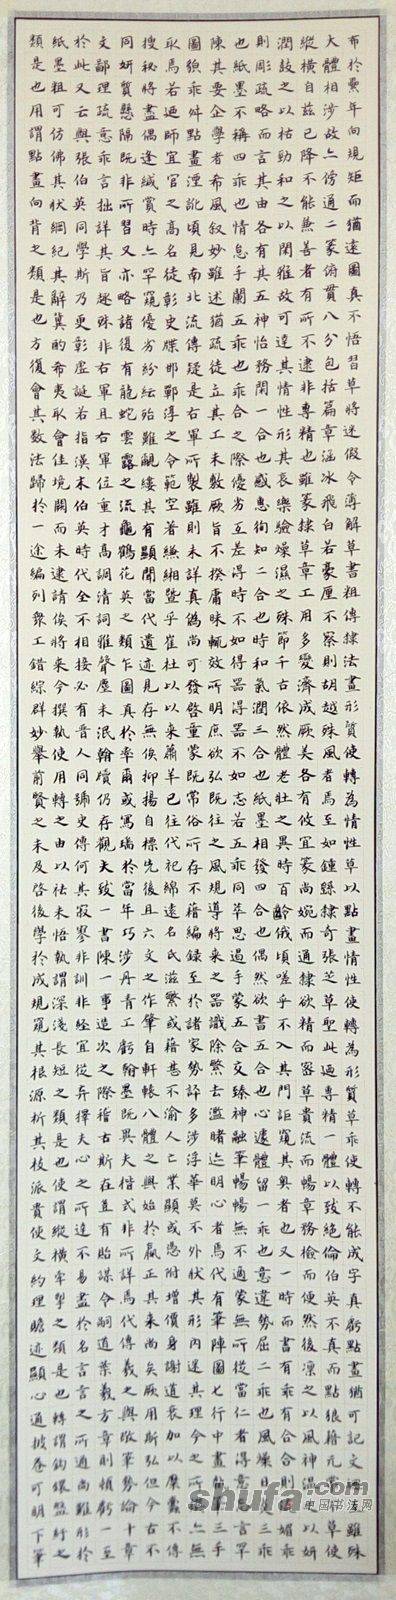 布於累年向規矩而猶遠圖真不悟習草將迷假令薄解草書粗傳隸法畫形質使轉為情性草以點畫情性使轉為形質草乖使轉不能成字真虧點畫猶可記文迴互雖殊
大體相涉故亦傍通二篆俯貫八分包括篇章涵泳飛白若毫厘不察則胡越殊風者焉至如鍾繇隸奇張芝草聖此乃專精一體以致絕倫伯英不真而點畫狼藉元常不草使
縱橫自茲已降不能兼善者有所不逮非專精也雖篆隸草章工用多變濟成厥美各有攸宜篆尚婉而通隸欲精而密草貴流而暢章務檢而便然後凜之以風神溫之以妍
潤鼓之以枯勁和之以閑雅故可達其情性形其哀樂驗燥濕之殊節千古依然體老壯之異時百齡俄頃嗟乎不入其門詎窺其奧者也又一時而書有乖有合合則流媚乖
則彫疏略而言其由各有其五神怡務閑一合也感惠徇知二合也時和氣潤三合也紙墨相發四合也偶然欲書五合也心遽體留一乖也意違勢屈二乖也風燥日炎三乖
也紙墨不稱四乖也情怠手闌五乖也乖合之際優劣互差得時不如得器得器不如志若五乖同萃思遏手蒙五合交臻神融筆暢暢無不適蒙無所從當仁者得意忘言罕
陳其要企學者希風敘妙雖述猶疏徒立其工未敷厥旨不揆庸昧輒效所明庶欲弘既往之風規導將來之器識除繁去濫睹迹明心者焉代有筆陣圖七行中畫執筆三手
圖貌乖舛點畫湮訛頃見南北流傳疑是右軍所製雖則未詳真偽尚可發啓童蒙既常俗所存不藉編錄至於諸家勢評多涉浮華莫不外狀其形內迷其理今之所撰亦無
取焉若迺師宜官之高名徒彰史牒邯鄲淳之令範空著縑緗暨乎崔杜以來蕭羊已往代祀綿遠名氏滋繁或藉甚不渝人亡業顯或憑附增價身謝道衰加以糜蠹不傳
搜秘將盡偶逢緘賞時亦罕窺優劣紛紜殆難覼縷其有顯聞當代遺迹見存無俟抑揚自標先後且六文之作肇自軒轅八體之興始於嬴正其來尚矣厥用斯弘但今古不
同妍質懸隔既非所習又亦略諸復有龍蛇雲露之流龜鶴花英之類乍圖真於率爾或寫瑞於當年巧涉丹青工虧翰墨異夫楷式非所詳焉代傳羲之與敬筆勢論十章
文鄙理疏意乖言拙詳其旨趣殊非右軍且右軍位重才高調清詞雅聲塵未泯翰牘仍存觀夫致一書陳一事造次之際稽古斯在豈有貽謀令嗣道叶義方章則頓虧一至
於此又云與張伯英同學斯乃更彰虛誕若指漢末伯英時代全不相接必有晉人同號史傳何其寂寥非訓非經宜從弃擇夫心之所達不易盡於名言言之所通尚難形於
紙墨粗可仿佛其狀綱紀其辭冀酌希夷取會佳境闕而未逮請俟將來今撰執使用轉之由以祛未悟執謂深淺長短之類是也使謂縱橫牽掣之類是也轉謂鈎環盤紆之
類是也用謂點畫向背之類是也方復會其數法歸於一途編列衆工錯綜群妙舉前賢之未及啓後學於成規窺其根源析其枝派貴使文約理贍迹顯心通披卷可明下筆
shufa.com
中国书法网